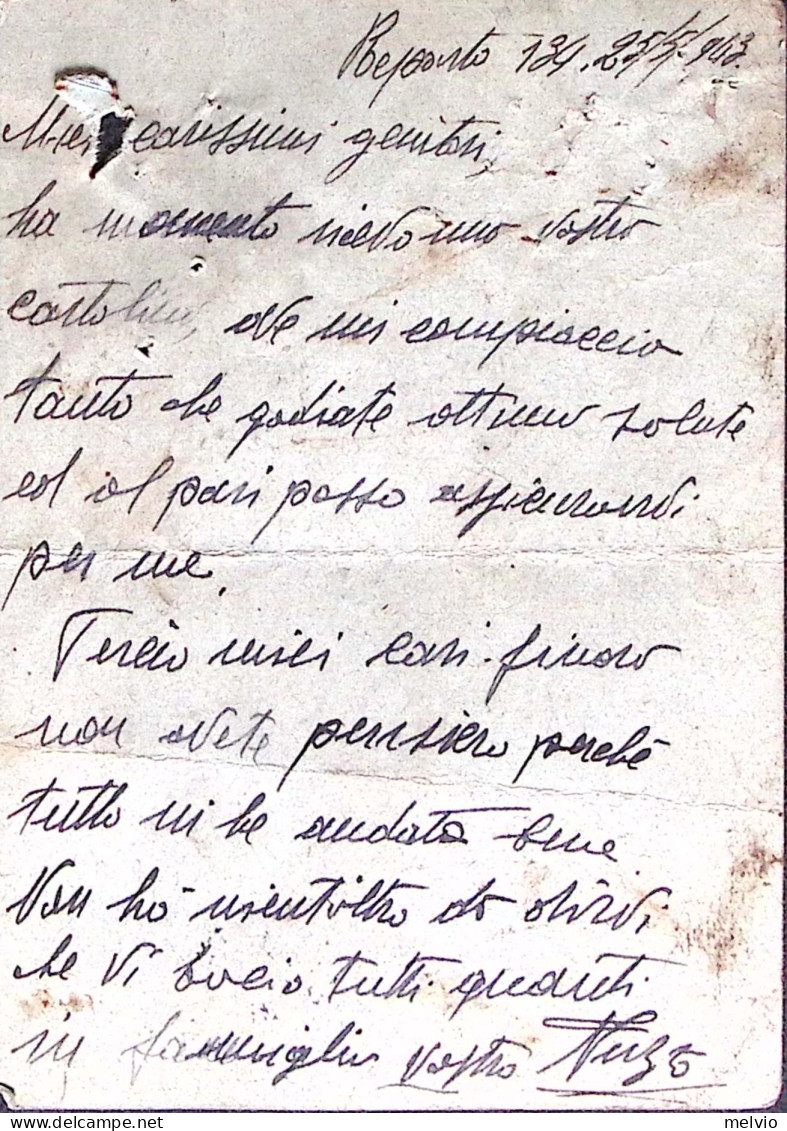 Reparto 134. 25/5/943
Miei carissimi genitori,
ha momento ricevo una vostra
cartolina, ove mi compiaccio
tanto che godiate ottima salute
ed al pari posso assicurarvi
per me.
miei cari. finora
non avete pensiero perché
tutto mi he andata bene
Non ho nient'altro da dirvi
he vi bacio tutti quanti
in famiglia vostro
melvio